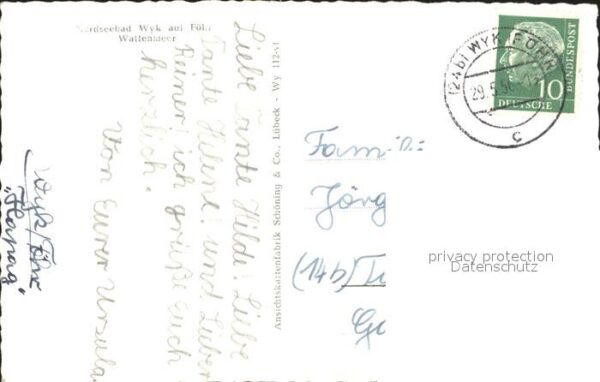 Nordseebad Wyk auf Föhr
Wattenmeer
Liebe Tante Hilde! Liebe
Tante Helene! und Lieber
Reiner! ich grüße Euch
herzlich.
Von Eurer Ursula.
Wyk/Föhr
Ansichtskartenfabrik Schöning & Co., Lübeck - Wy 112-vi
(24b) WYK (FÖHR)
29.5.5
c
10
DEUTSCHE
BUNDESPOST
Fam
Jörg
(14b)
privacy protection
Datenschutz